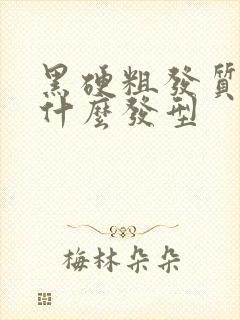 黑硬粗發質
什麼發型
梅林朵朵